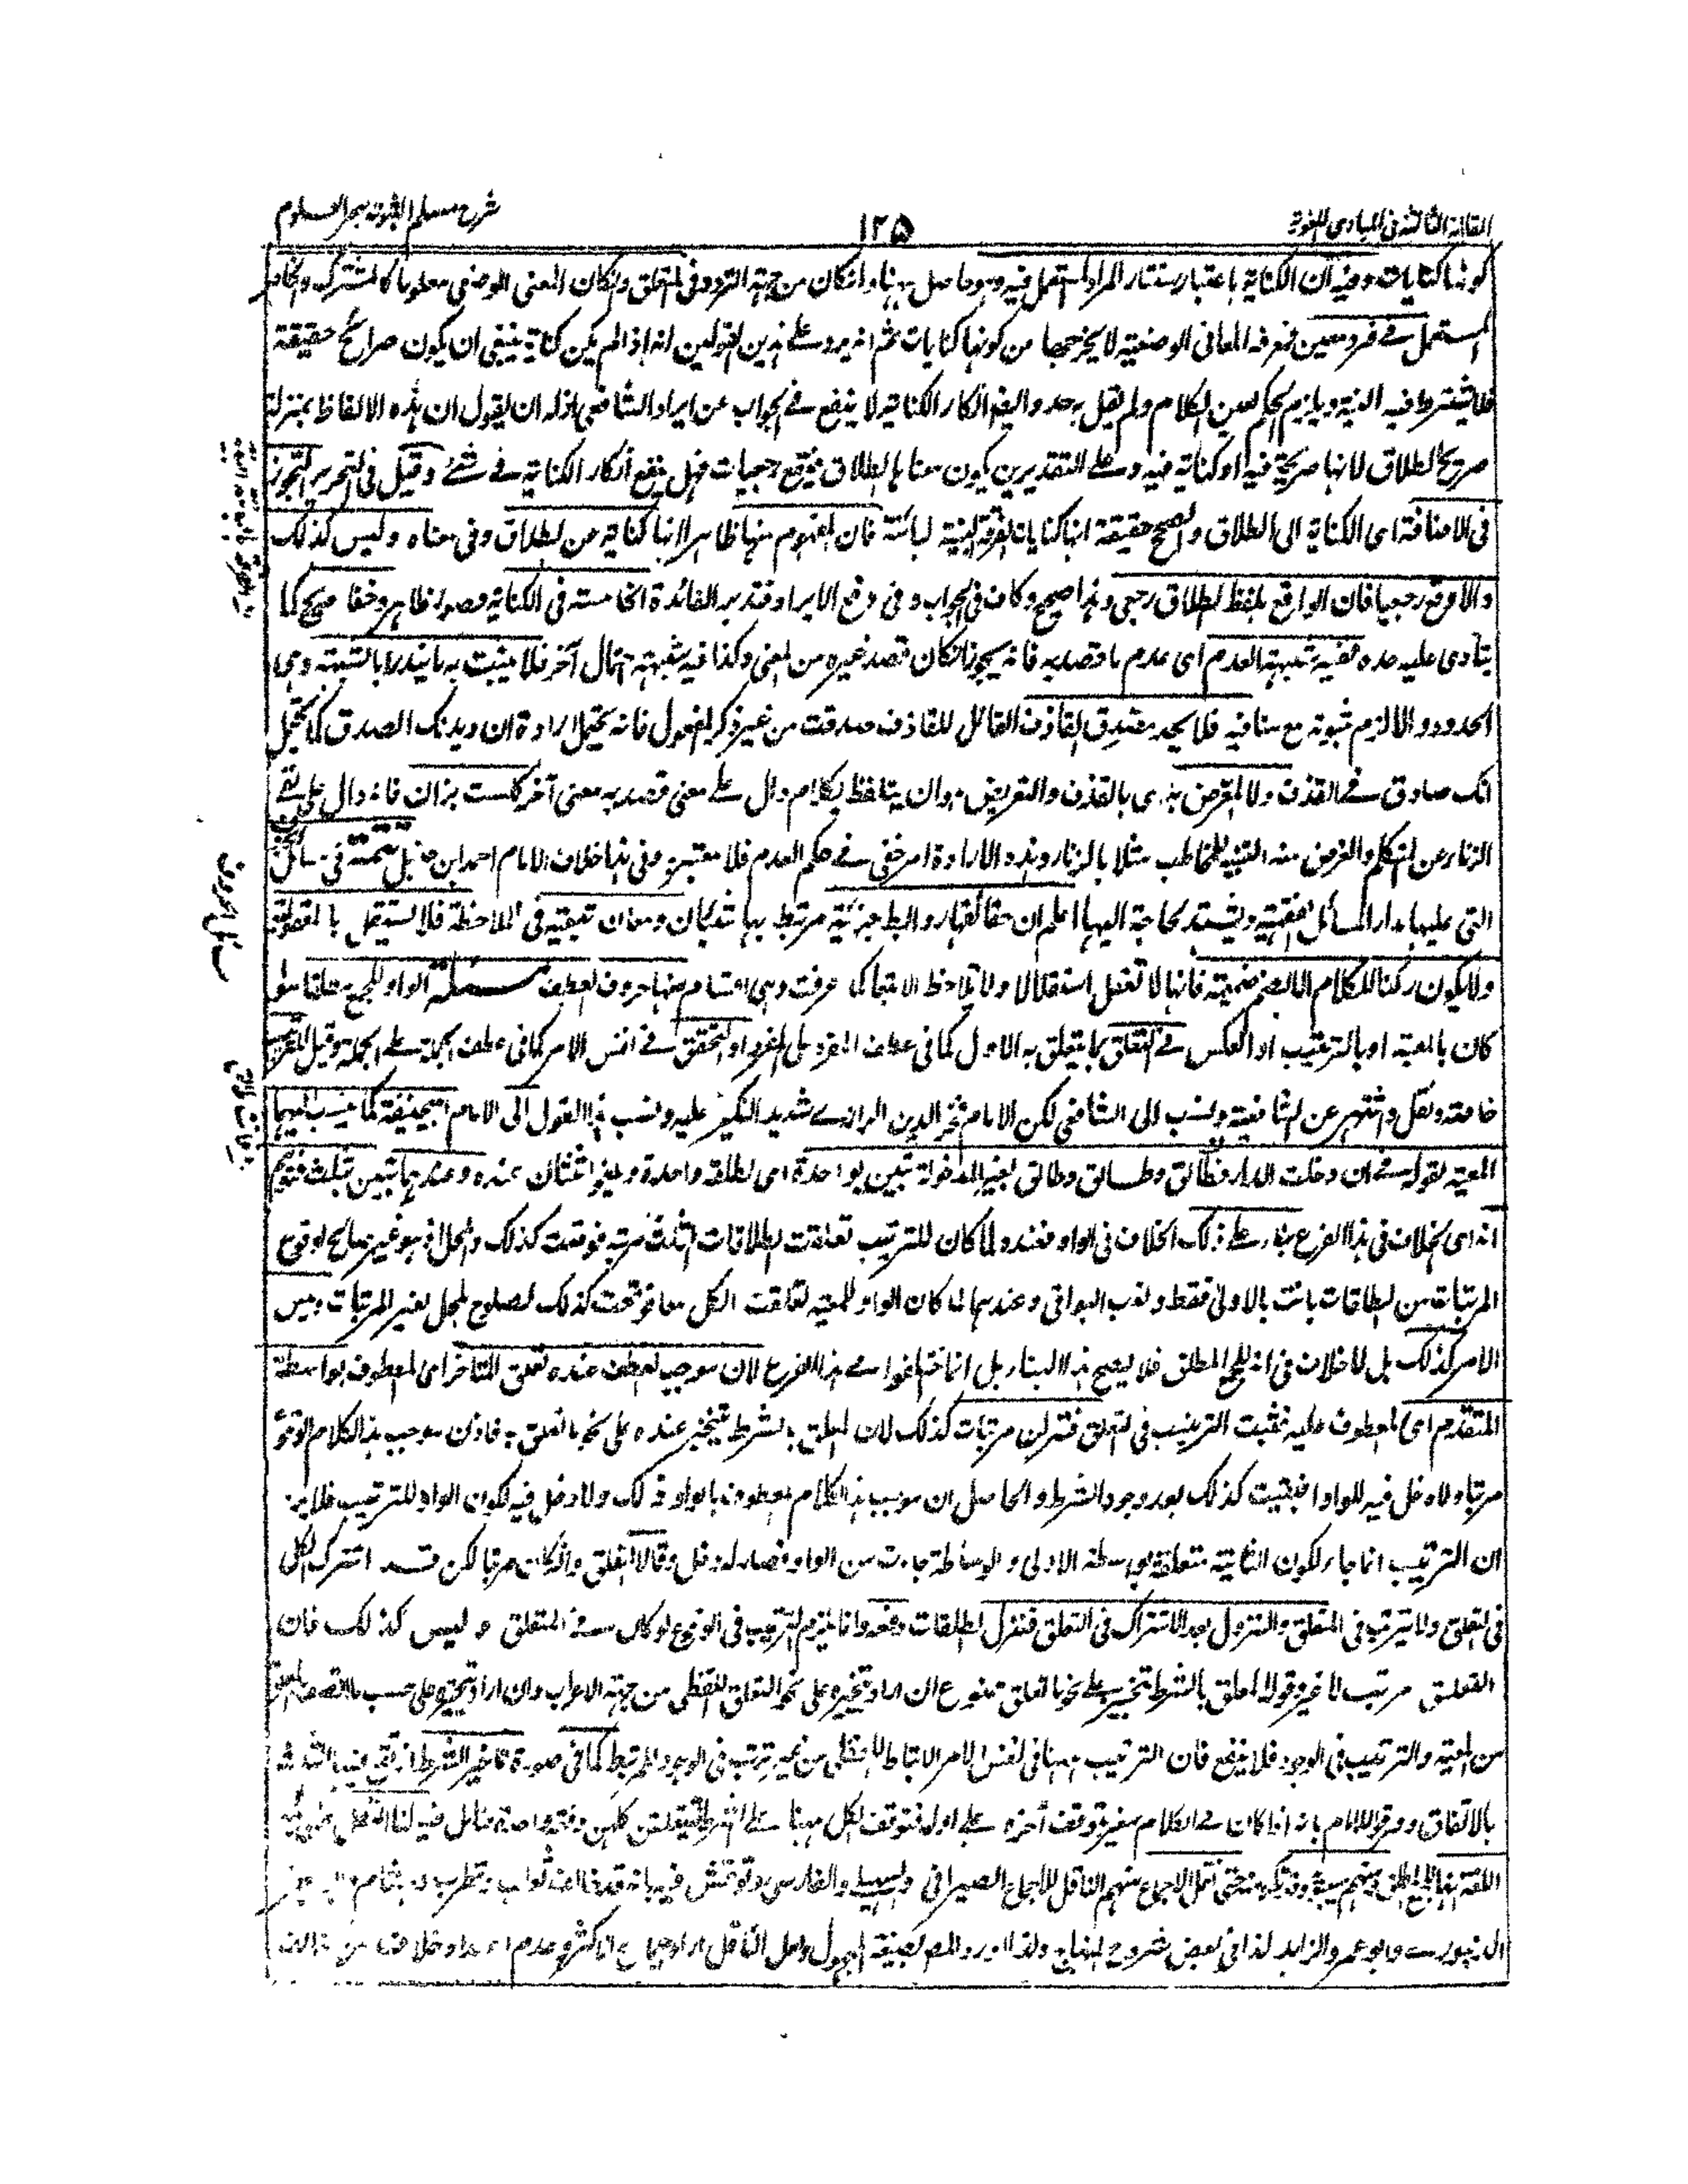 المقالة الثالثة فى المبادى اللغوية
١٢٥
شرح مسلم الثبوت بحر العلوم
كونها كنايات وفيه ان الكناية باعتبار استتار المراد المستعمل فيه وهو حاصل ههنا وان كان من جهة التردد فى المتعلق وان كان المعنى الوضعى معلوما كالمشترك والخاص
المستعمل فى فرد معين فمعرفة المعانى الوضعية لا يخرجها من كونها كنايات ثم انه يرد على هذين القولين انه اذا لم يكن كناية ينبغى ان يكون صرائح حقيقة
فلا يشترط فيه النية ويلزم الحكم بعين الكلام ولم يقل به احد وايضا انكار الكناية لا ينفع فى الجواب عن ايراد الشافعى اذ له ان يقول ان هذه الالفاظ بمنزلة
صريح الطلاق لانها صريحة فيه او كناية فيه وعلى التقديرين يكون معناها الطلاق فيقع رجعيات فهل ينفع انكار الكناية فى شئ وقيل فى التحرير التجوز
فى الاضافة اى الكناية الى الطلاق والصحيح حقيقة انها كنايات الفرقة البينة البائنة فان المفهوم منها ظاهرا انها كناية من الطلاق وفى معناه وليس كذلك
والا وقع رجعيا فان الواقع بلفظ الطلاق رجعى وهذا صحيح وكاف فى الجواب وفى دفع الايراد فتدبر الفائدة الخامسة فى الكناية قصور لظاهر وخفا صحيح كما
يتأدى عليه حده ففيه شبهة العدم اى عدم ما قصد به فانه يجوز ان كان قصد غيره من المعنى وكذا فيه شبهة احتمال آخر فلا يثبت به ما يندرأ بالشبهة وهى
الحدود والا لزم ثبوته مع منافيه فلا يحد مصدق القاذف القائل للقاذف صدقت من غير ذكر المفعول فانه يحتمل ارادة ان ديدنك الصدق كما يحتمل
انك صادق فى القذف ولا المعرض به اى بالقذف والتعريض هو ان يتلفظ بكلام دال على معنى قصد به معنى آخر كلست بزان فانه دال على نفى
الزنا عن المتكلم والغرض منه التنبيه للمخاطب مثلا بالزنا وهذه الارادة امر خفى فى حكم العدم فلا معتبر به وفى هذا خلاف الامام احمد ابن حنبل تتمة فى مسائل الحروف
التى عليها مدار المسائل الفقهية ويشتد الحاجة اليها اعلم ان حقائقها روابط جزئية مرتبط بها شيئان ومعان تبعية فى الملاحظة فلا تستقل بالمعقولية
ولا يكون ركنا للكلام الا بالضم ضميمة فانها لا تعقل استقلالا ولا تلاحظ الا تبعا كما عرفت وهى اقسام منها حروف العطف مسئلة الواو للجمع مطلقا سواء
كان بالمعية او بالترتيب او العكس فى التعلق بما يتعلق به الاول كما فى عطف المفرد على المفرد او التحقق فى نفس الامر كما فى عطف الجملة على الجملة وقيل للترتيب
خاصة ونقل واشتهر عن الشافعية ونسب الى الشافعى لكن الامام فخر الدين الرازى شديد النكير عليه ونسب هذا القول الى الامام ابيحنيفة كما ينسب اليهما
المعية لقوله فى ان دخلت الدار فطالق وطالق وطالق لغير المدخولة تبين بواحدة اى بطلقة واحدة ويلغو اثنتان عنده وعندهما تبين بثلث فتوهم
انه اى الخلاف فى هذا الفرع بناء على ذلك الخلاف فى الواو فعنده لما كان للترتيب تعلقت الطلاقات الثلث مرتبة فوقعت كذلك والمحل اذ هو غير صالح لوقوع
المرتبات من الطلاقات بانت بالاولى فقط ولغت البواقى وعندهما لما كان الواو للمعية تعلقت الكل معا فوقعت كذلك لصلوح المحل لغير المرتبات وليس
الامر كذلك بل لا خلاف فى انه للجمع المطلق فلا يصح هذا البناء بل انما اختلفوا فى هذا الفرع لان موجب العطف عنده تعلق المتاخر اى المعطوف بواسطة
المتقدم اى المعطوف عليه فيثبت الترتيب فى التعلق فتنزلن مرتبات كذلك لان المعلق بالشرط يتنجز عنده على نحو ما تعلق به فاذن موجب هذا الكلام الوقوع
مرتبا ولا دخل فيه للواو فيثبت كذلك بعد وجود الشرط والحاصل ان موجب هذا الكلام المعطوف بالواو ذلك ولا دخل فيه لكون الواو للترتيب فلا يرد
ان الترتيب انما جاء لكون الثانية متعلقة بواسطة الاولى والوساطة جاءت من الواو فصار له دخل وقالا التعلق وان كان مرتبا لكن قد اشترك الكل
فى التعلق ولا يترتب فى المتعلق والنزول بعد الاشتراك فى التعلق فتنزل الطلقات دفعة وانما يلزم الترتيب فى الوقوع لو كان فى المتعلق وليس كذلك فان
التعليق مرتب لا غير وقوله المعلق بالشرط تنجيز على نحو ما تعلق ممنوع ان اراد تنجيزه على نحو التعلق اللفظى من جهة الاعراب وان اراد تنجيزه على حسب ما اقتضاه المعلق
من المعية والترتيب فى الوجود فلا ينفع فان الترتيب ههنا فى نفس الامر الارتباط اللفظى من غير ترتب فى الوجود المرتبط كما فى صورة تاخير الشرط اذ تقع فيها الثلاثة
بالاتفاق وفرق للامام بانه اذا كان فى الكلام مغير توقف آخره على اوله فتوقف الكل ههنا على الشرط فيتعلقن كلهن دفعة واحدة فتأمل فيه لنا النقل عن ائمة
اللغة انها للجمع المطلق ومنهم سيبويه وتكرر منه حتى نقل الاجماع منهم الناقل للاجماع الصيرافى والسهيلى والفارسى ونوقش فيه بانه قد خالف ثعلب وقطرب وهشام
الدينورى وابو عمرو الزاهد كذا فى بعض شروح المنهاج ولذا اورد المص بصيغة المجهول ولعل الناقل اراد اجماع الاكثر وعدم